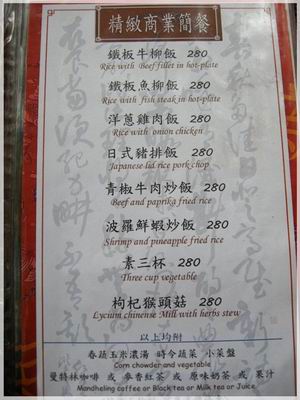 精緻商業簡餐
鐵板牛柳飯 280
Rice with Beef fillet in hot-plate
鐵板魚柳飯 280
Rice with fish steak in hot-plate
洋蔥雞肉飯 280
Rice with onion chicken
日式豬排飯 280
Japanese-lid rice pork chop
青椒牛肉炒飯 280
Beef and paprika fried rice
波羅鮮蝦炒飯 280
Shrimp and pineapple fried rice
素三杯 280
Three cup vegetable
枸杞猴頭菇 280
Lycium chinense Mill with herbs stew
以上均附
春蔬玉米濃湯 時令蔬菜 小菜盤
Corn chowder and vegetable
曼特林咖啡 或 麥香紅茶 或 原味奶茶 或 果汁
Mandheling coffee or Black tea or Milk tea or Juice